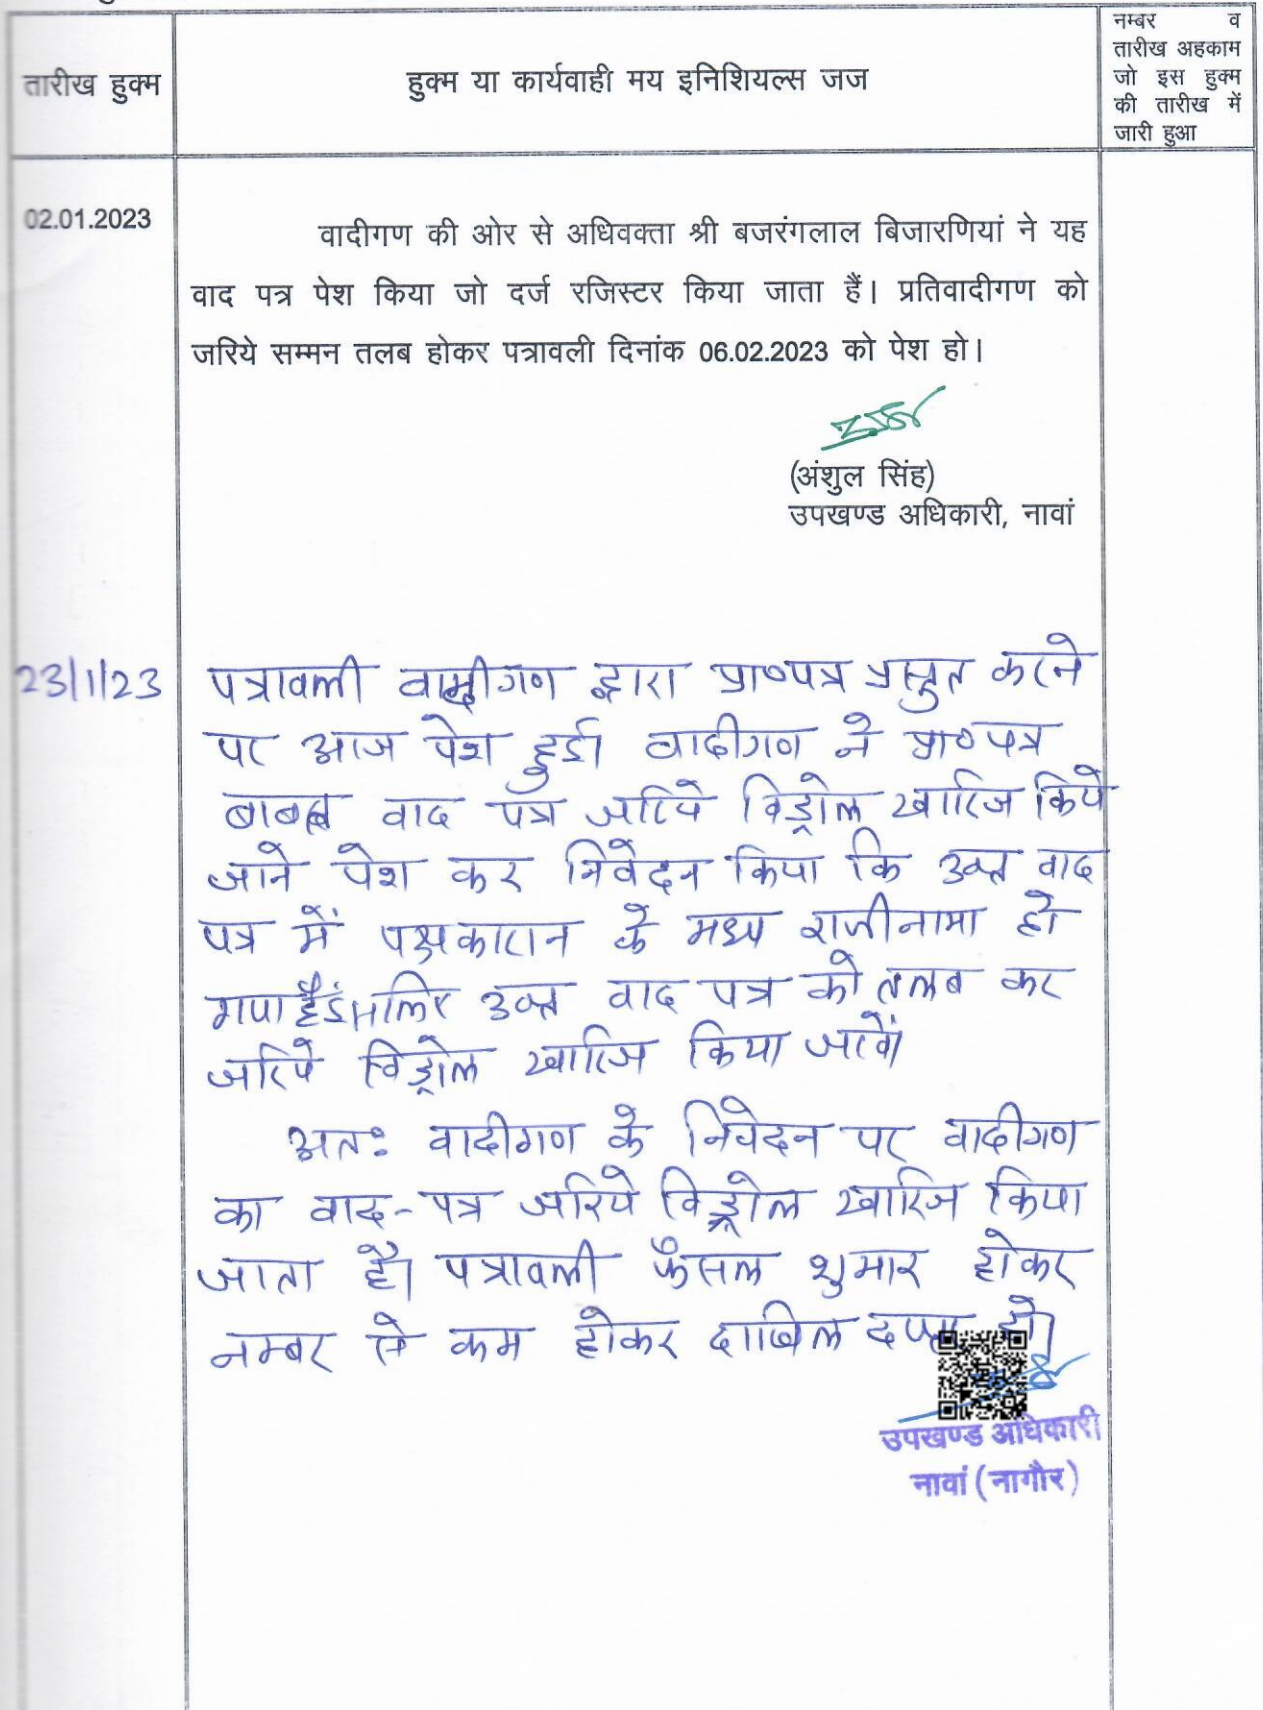 तारीख हुक्म
हुक्म या कार्यवाही मय इनिशियल्स जज
नम्बर व
तारीख अहकाम
जो इस हुक्म
की तारीख में
जारी हुआ
02.01.2023
वादीगण की ओर से अधिवक्ता श्री बजरंगलाल बिजारणियां ने यह
वाद पत्र पेश किया जो दर्ज रजिस्टर किया जाता हैं। प्रतिवादीगण को
जरिये सम्मन तलब होकर पत्रावली दिनांक 06.02.2023 को पेश हो।
(अंशुल सिंह)
उपखण्ड अधिकारी, नावां
23/1/23
पत्रावली वादीगण द्वारा प्रा०पत्र प्रस्तुत करने
पर आज पेश हुई। वादीगण ने प्रा०पत्र
बाबत वाद पत्र जरिये विड्रोल खारिज किये
जाने पेश कर निवेदन किया कि उक्त वाद
पत्र में पक्षकारान के मध्य राजीनामा हो
गया है इसलिए उक्त वाद पत्र को तलब कर
जरिये विड्रोल खारिज किया जावें।
अतः वादीगण के निवेदन पर वादीगण
का वाद-पत्र जरिये विड्रोल खारिज किया
जाता है। पत्रावली फैसल शुमार होकर
नम्बर से कम होकर दाखिल दफ्तर हो।
उपखण्ड अधिकारी
नावां (नागौर)